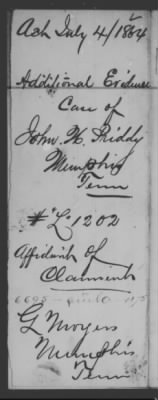 Ack July 4/1884
Additional Evidence
Case of
John H. Priddy
Memphis
Tenn
# L-1202
Affidavit of
Claimant
G Moyers
Memphis
Tenn